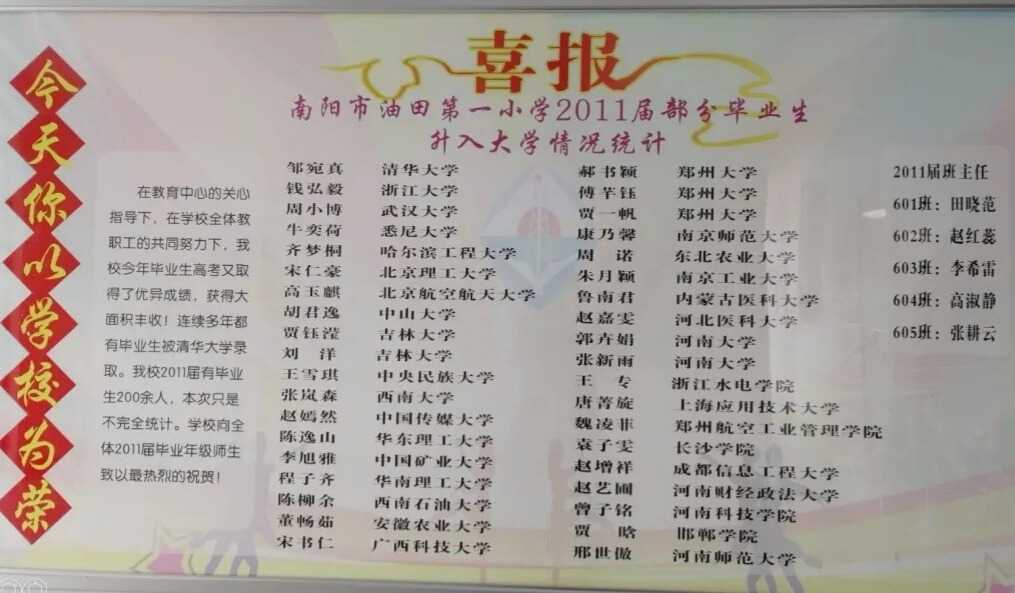 今天你以学校为荣
喜报
南阳市油田第一小学2011届部分毕业生
升入大学情况统计
在教育中心的关心
指导下，在学校全体教
职工的共同努力下，我
校今年毕业生高考又取
得了优异成绩，获得大
面积丰收！连续多年都
有毕业生被清华大学录
取。我校2011届有毕业
生200余人，本次只是
不完全统计。学校向全
体2011届毕业年级师生
致以最热烈的祝贺！
邹宛真 清华大学
钱弘毅 浙江大学
周小博 武汉大学
牛奕荷 悉尼大学
齐梦桐 哈尔滨工程大学
宋仁豪 北京理工大学
高玉麒 北京航空航天大学
胡君逸 中山大学
贾钰滢 吉林大学
刘 洋 吉林大学
王雪琪 中央民族大学
张岚森 西南大学
赵嫣然 中国传媒大学
陈逸山 华东理工大学
李旭雅 中国矿业大学
程子齐 华南理工大学
陈柳余 西南石油大学
董畅茹 安徽农业大学
宋书仁 广西科技大学
郝书颖 郑州大学
傅芊钰 郑州大学
贾一帆 郑州大学
康乃馨 南京师范大学
周 诺 东北农业大学
朱月颖 南京工业大学
鲁南君 内蒙古医科大学
赵嘉雯 河北医科大学
郭卉娟 河南大学
张新雨 河南大学
王 专 浙江水电学院
唐菁旋 上海应用技术大学
魏凌菲 郑州航空工业管理学院
袁子雯 长沙学院
赵增祥 成都信息工程大学
赵艺圃 河南财经政法大学
曾子铭 河南科技学院
贾 晗 邯郸学院
邢世傲 河南师范大学
2011届班主任
601班：田晓范
602班：赵红蕊
603班：李希雷
604班：高淑静
605班：张耕云